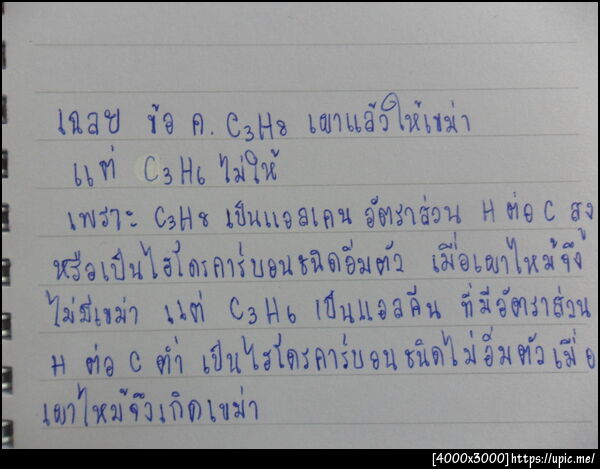 เฉลย ข้อ ค. C3H8 เผาแล้วให้เขม่า
แต่ C3H6 ไม่ให้
เพราะ C3H8 เป็นแอลเคน อัตราส่วน H ต่อ C สูง
หรือเป็นไฮโดรคาร์บอนชนิดอิ่มตัว เมื่อเผาไหม้จึง
ไม่มีเขม่า แต่ C3H6 เป็นแอลคีน ที่มีอัตราส่วน
H ต่อ C ต่ำ เป็นไฮโดรคาร์บอนชนิดไม่อิ่มตัวเมื่อ
เผาไหม้จึงเกิดเขม่า
[4000x3000]https://upic.me/